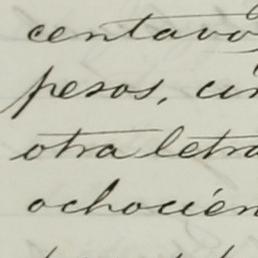 centavos
pesos, cin
otra letra
ochocien